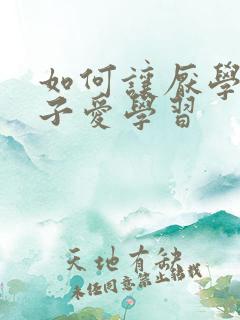 如何讓厭學
子愛學習
天地有缺
未经同意禁止转载